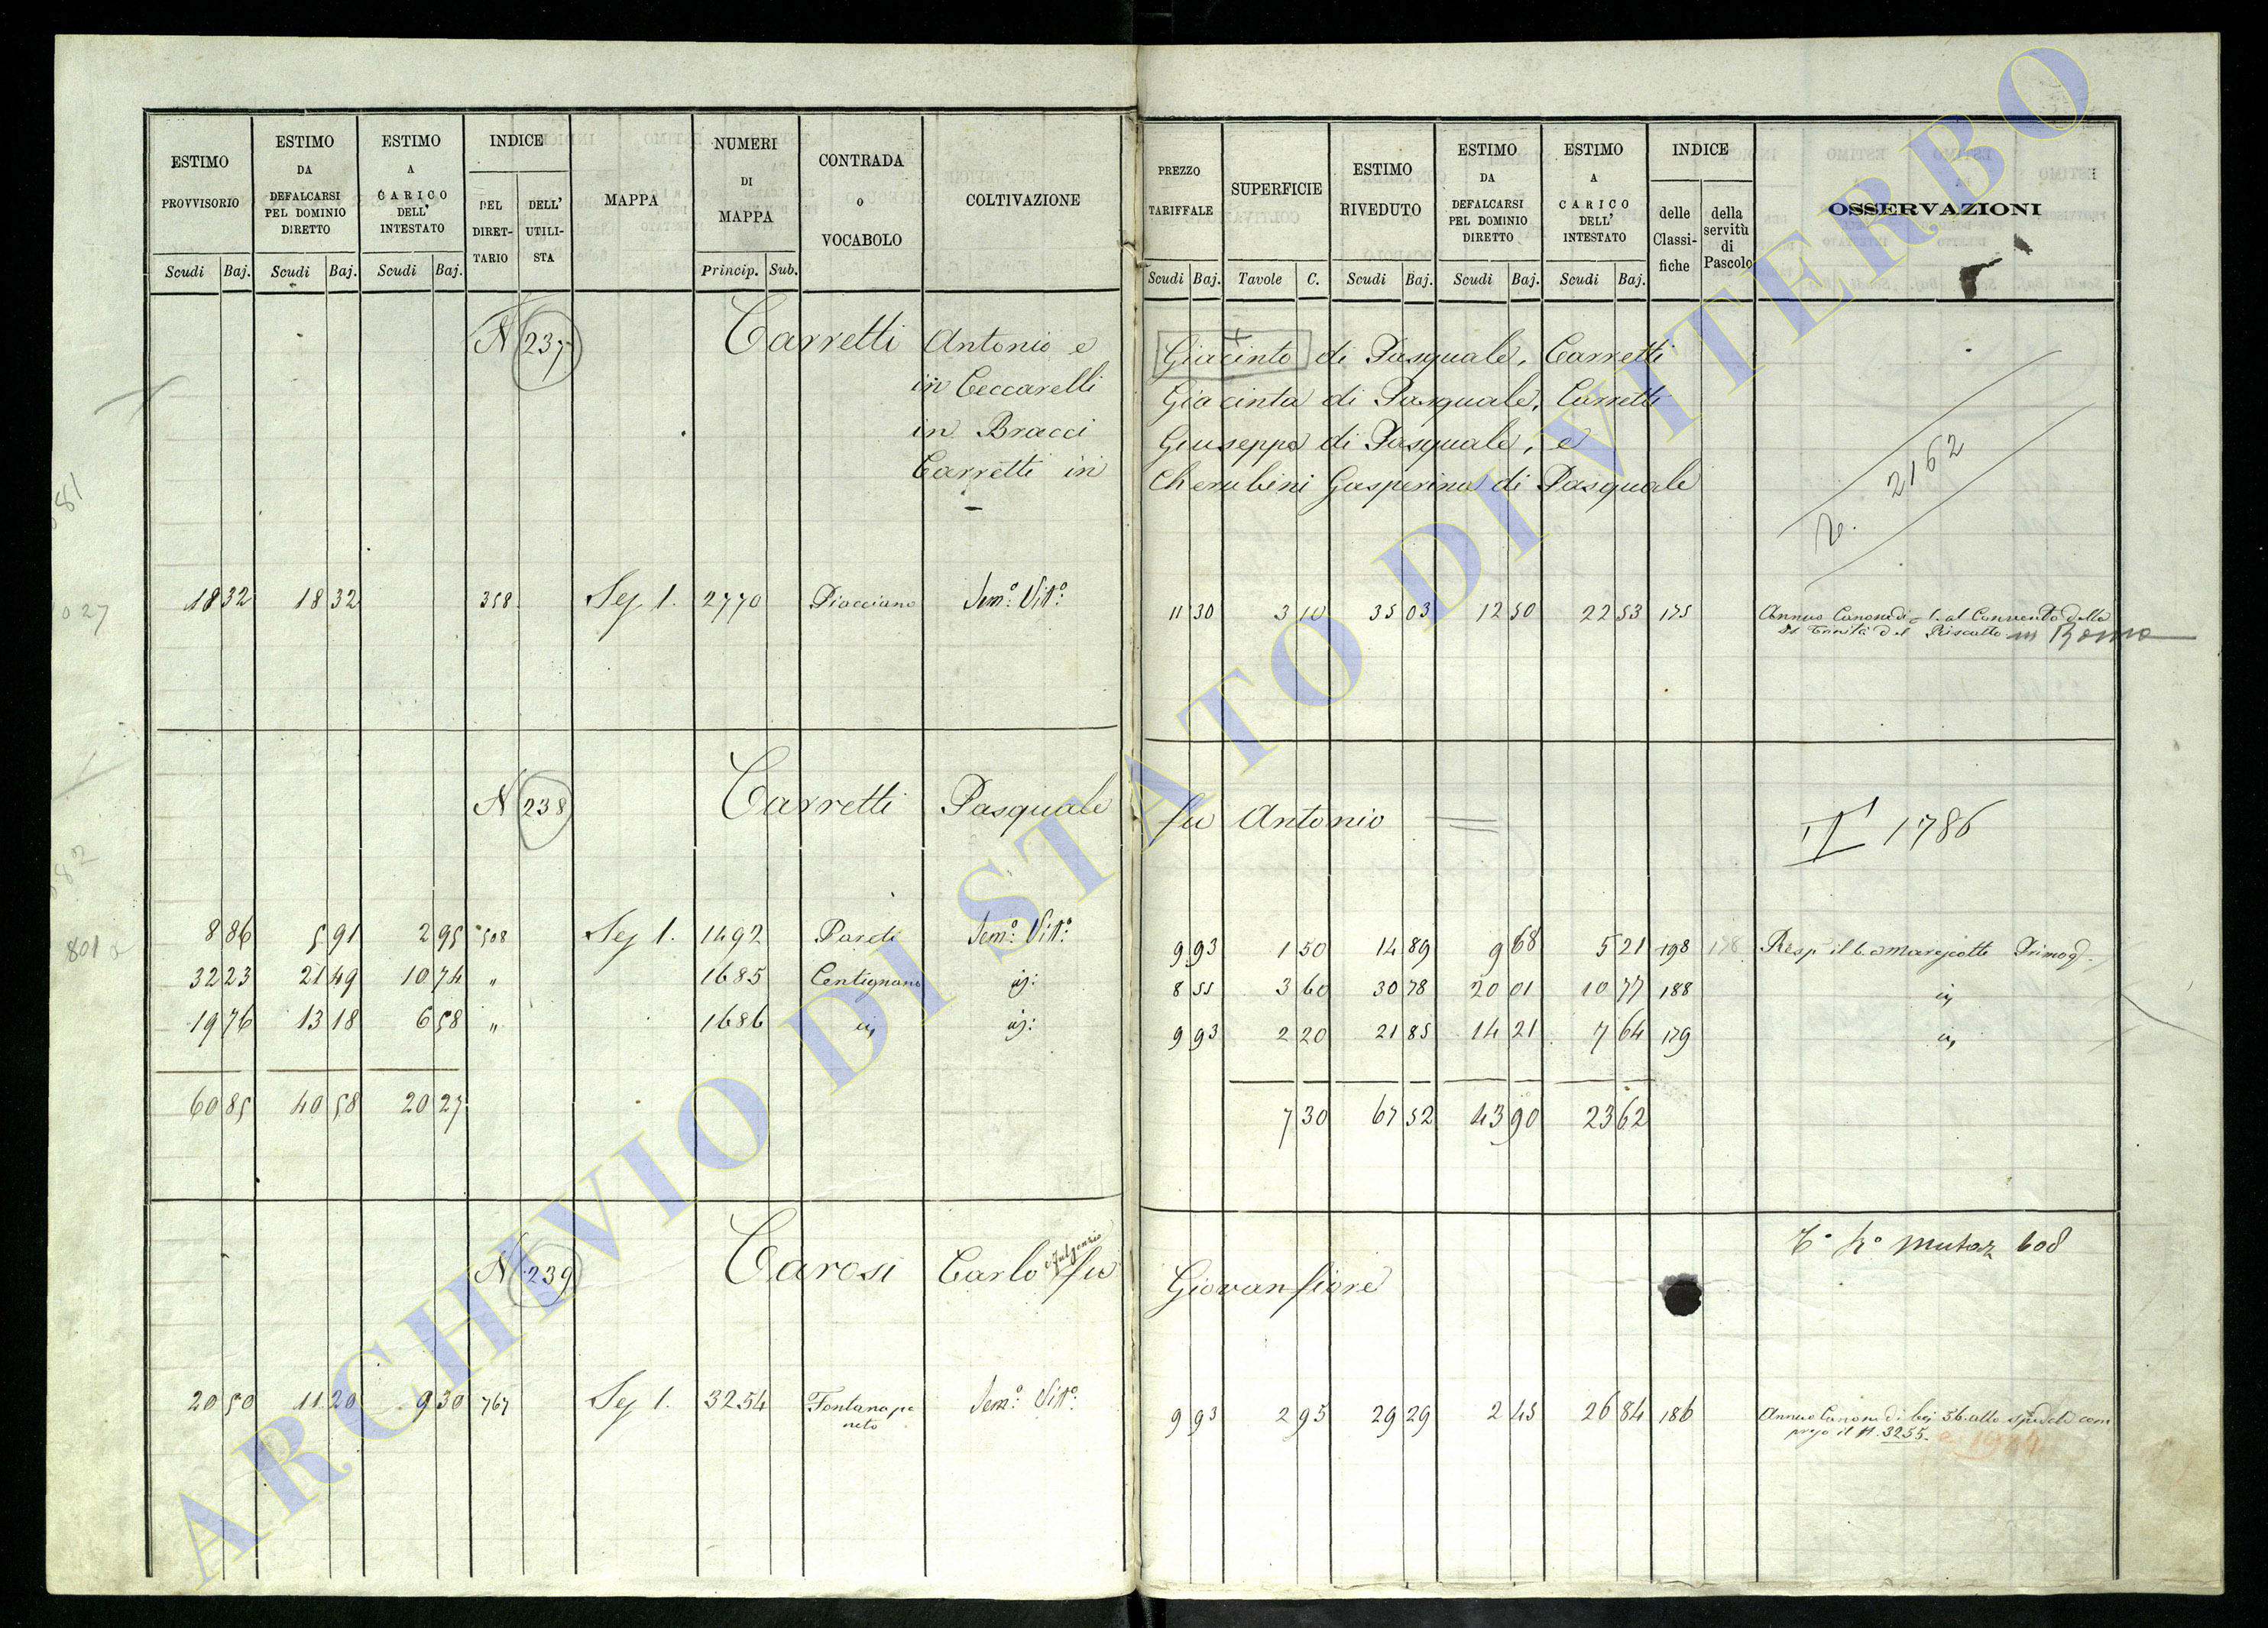 ESTIMO PROVVISORIO
ESTIMO DA DEFALCARSI PEL DOMINIO DIRETTO
ESTIMO A CARICO DELL' INTESTATO
INDICE
DEL DIRET-TARIO
DELL' UTILI-STA
MAPPA
NUMERI DI MAPPA
CONTRADA o VOCABOLO
COLTIVAZIONE
PREZZO TARIFFALE
SUPERFICIE
ESTIMO RIVEDUTO
ESTIMO DA DEFALCARSI PEL DOMINIO DIRETTO
ESTIMO A CARICO DELL' INTESTATO
INDICE
delle Classi-fiche
della servitù di Pascolo
OSSERVAZIONI
Scudi Baj. Scudi Baj. Scudi Baj. Princip. Sub. Scudi Baj. Tavole C. Scudi Baj. Scudi Baj. Scudi Baj.
N 237 Carretti Antonio e Giacinto di Pasquale, Carretti
in Ceccarelli Giacinta di Pasquale, Carretti
in Bracci Giuseppa di Pasquale, e
Carretti in Cherubini Gasperina di Pasquale
2162
18 32 18 32 358 Sez 1. 2770 Piacciano Sem.º Vit.º 11 30 3 10 35 03 12 50 22 53 175 Annuo Canone di 1. al Convento della
SS Trinità del Riscatto in Roma
N 238 Carretti Pasquale fu Antonio 1786
8 86 5 91 2 95 508 Sez 1. 1492 Pareti Sem.º Vit.º 9 93 1 50 14 89 9 68 5 21 198 178 Resp. il Marescotti Primog.
32 23 21 49 10 74 " 1685 Centignano id: 8 55 3 60 30 78 20 01 10 77 188 id
19 76 13 18 6 58 " 1686 id id: 9 93 2 20 21 85 14 21 7 64 179 id
60 85 40 58 20 27 7 30 67 52 43 90 23 62
N 239 Carosi Carlo Fulgenzio fu Giovanfiore
608
20 50 11 20 9 30 767 Sez 1. 3254 Fontanape
neto Sem.º Vit.º 9 93 2 95 29 29 2 45 26 84 186 Annuo Canone di baj 56. allo com
preso il N. 3255.
027
801
ARCHIVIO DI STATO DI VITERBO